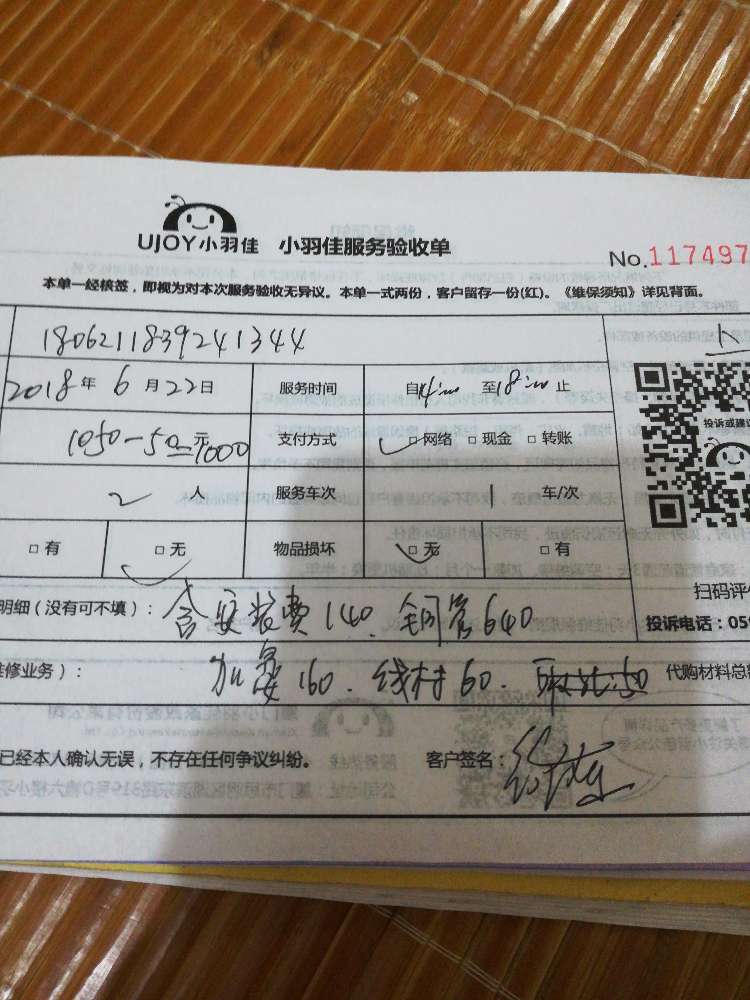 UJOY小羽佳 小羽佳服务验收单
No.117497
本单一经核签，即视为对本次服务验收无异议。本单一式两份，客户留存一份(红)。《维保须知》详见背面。
1806211839241344
2018年6月22日 服务时间 自14:00 至18:00止
1050-50元=1000 支付方式 □网络 □现金 □转账
投诉或建议
2人 服务车次 1车/次
□有 □无 物品损坏 □无 □有
扫码评
明细（没有可不填）： 含安装费140、铜管640
投诉电话：059
维修业务）： 加氟160、线材60、 代购材料总
已经本人确认无误，不存在任何争议纠纷。 客户签名：